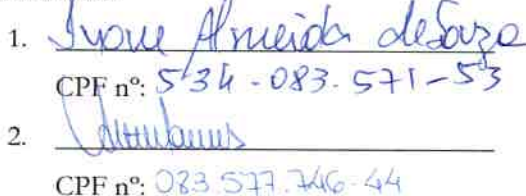 1. Ivone Almeida de Souza
CPF nº: 534-083.571-53
2.
CPF nº: 083.577.746-44